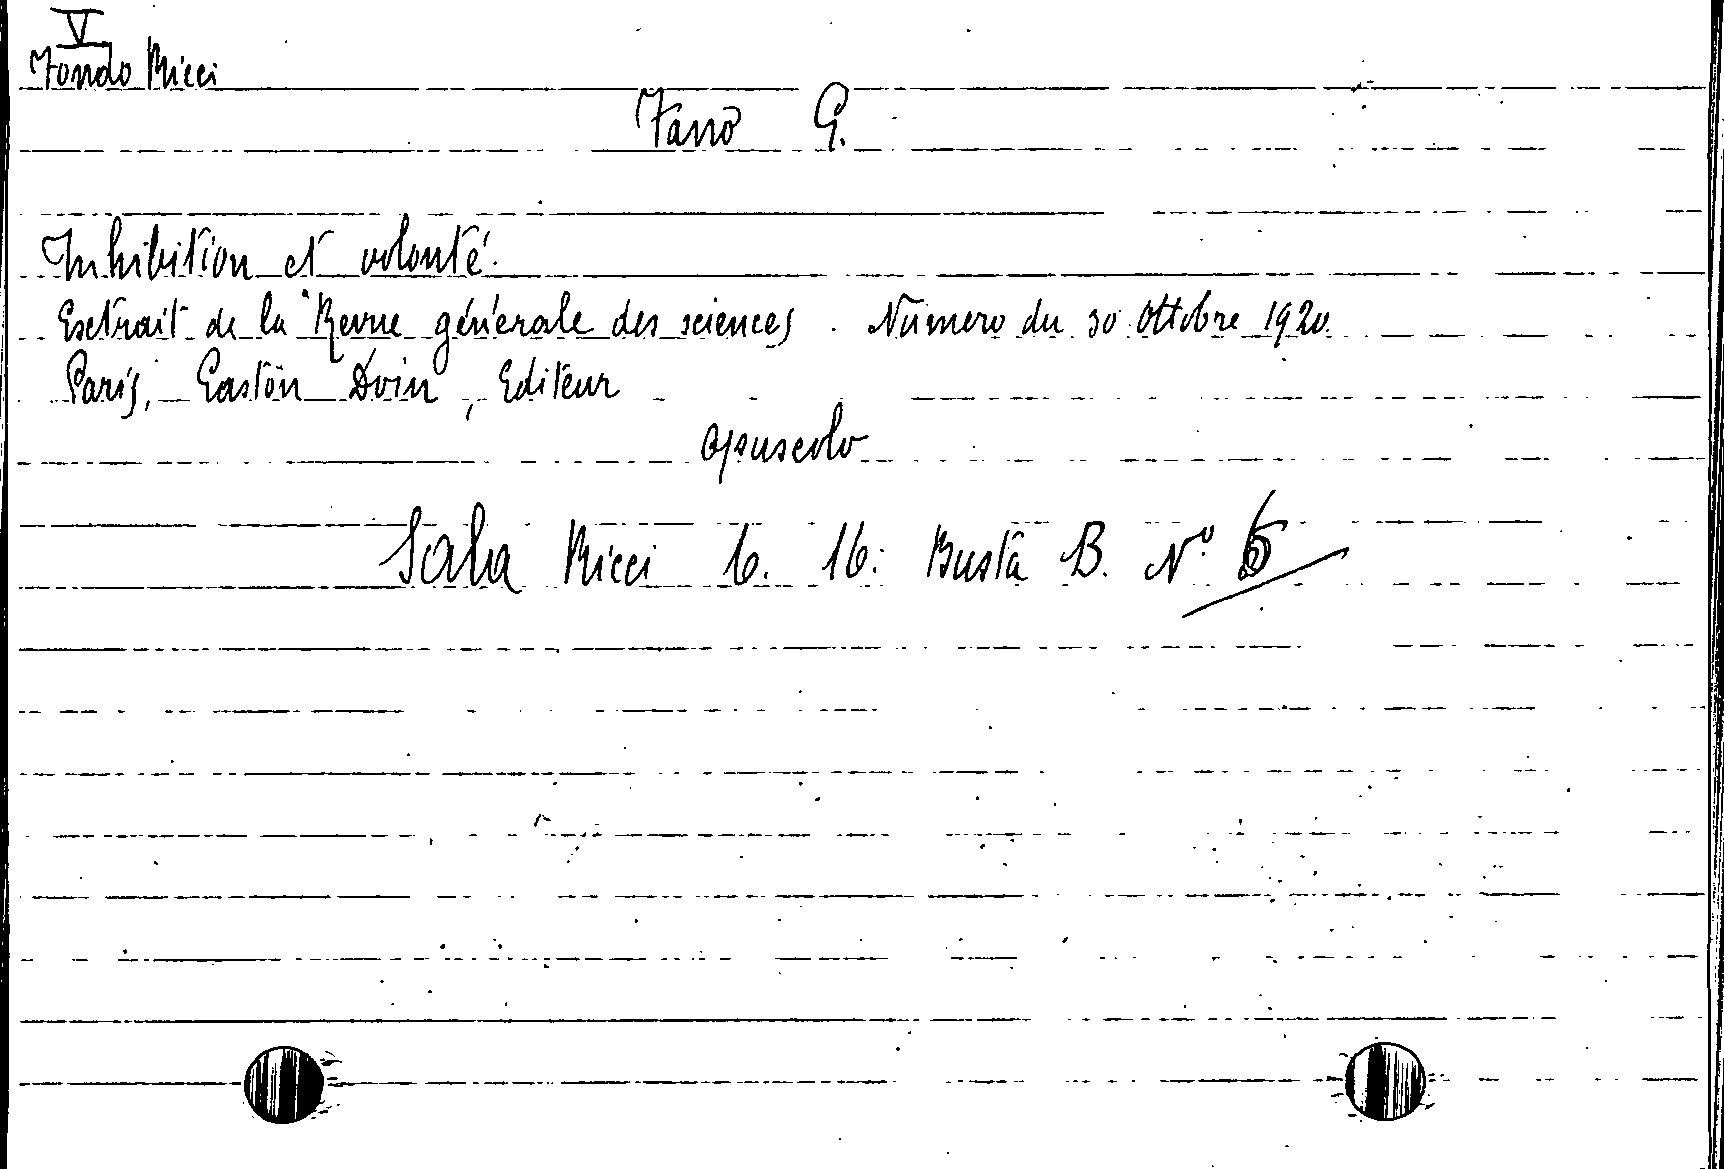 V
Fondo Ricci
Fano G.
Inhibition et volonté.
Esctrait de la "Revue générale des sciences. Numero du 30 Ottobre 1920.
Paris, Gaston Doin, Editeur
opuscolo
Sala Ricci 6. 16. Busta B. N°